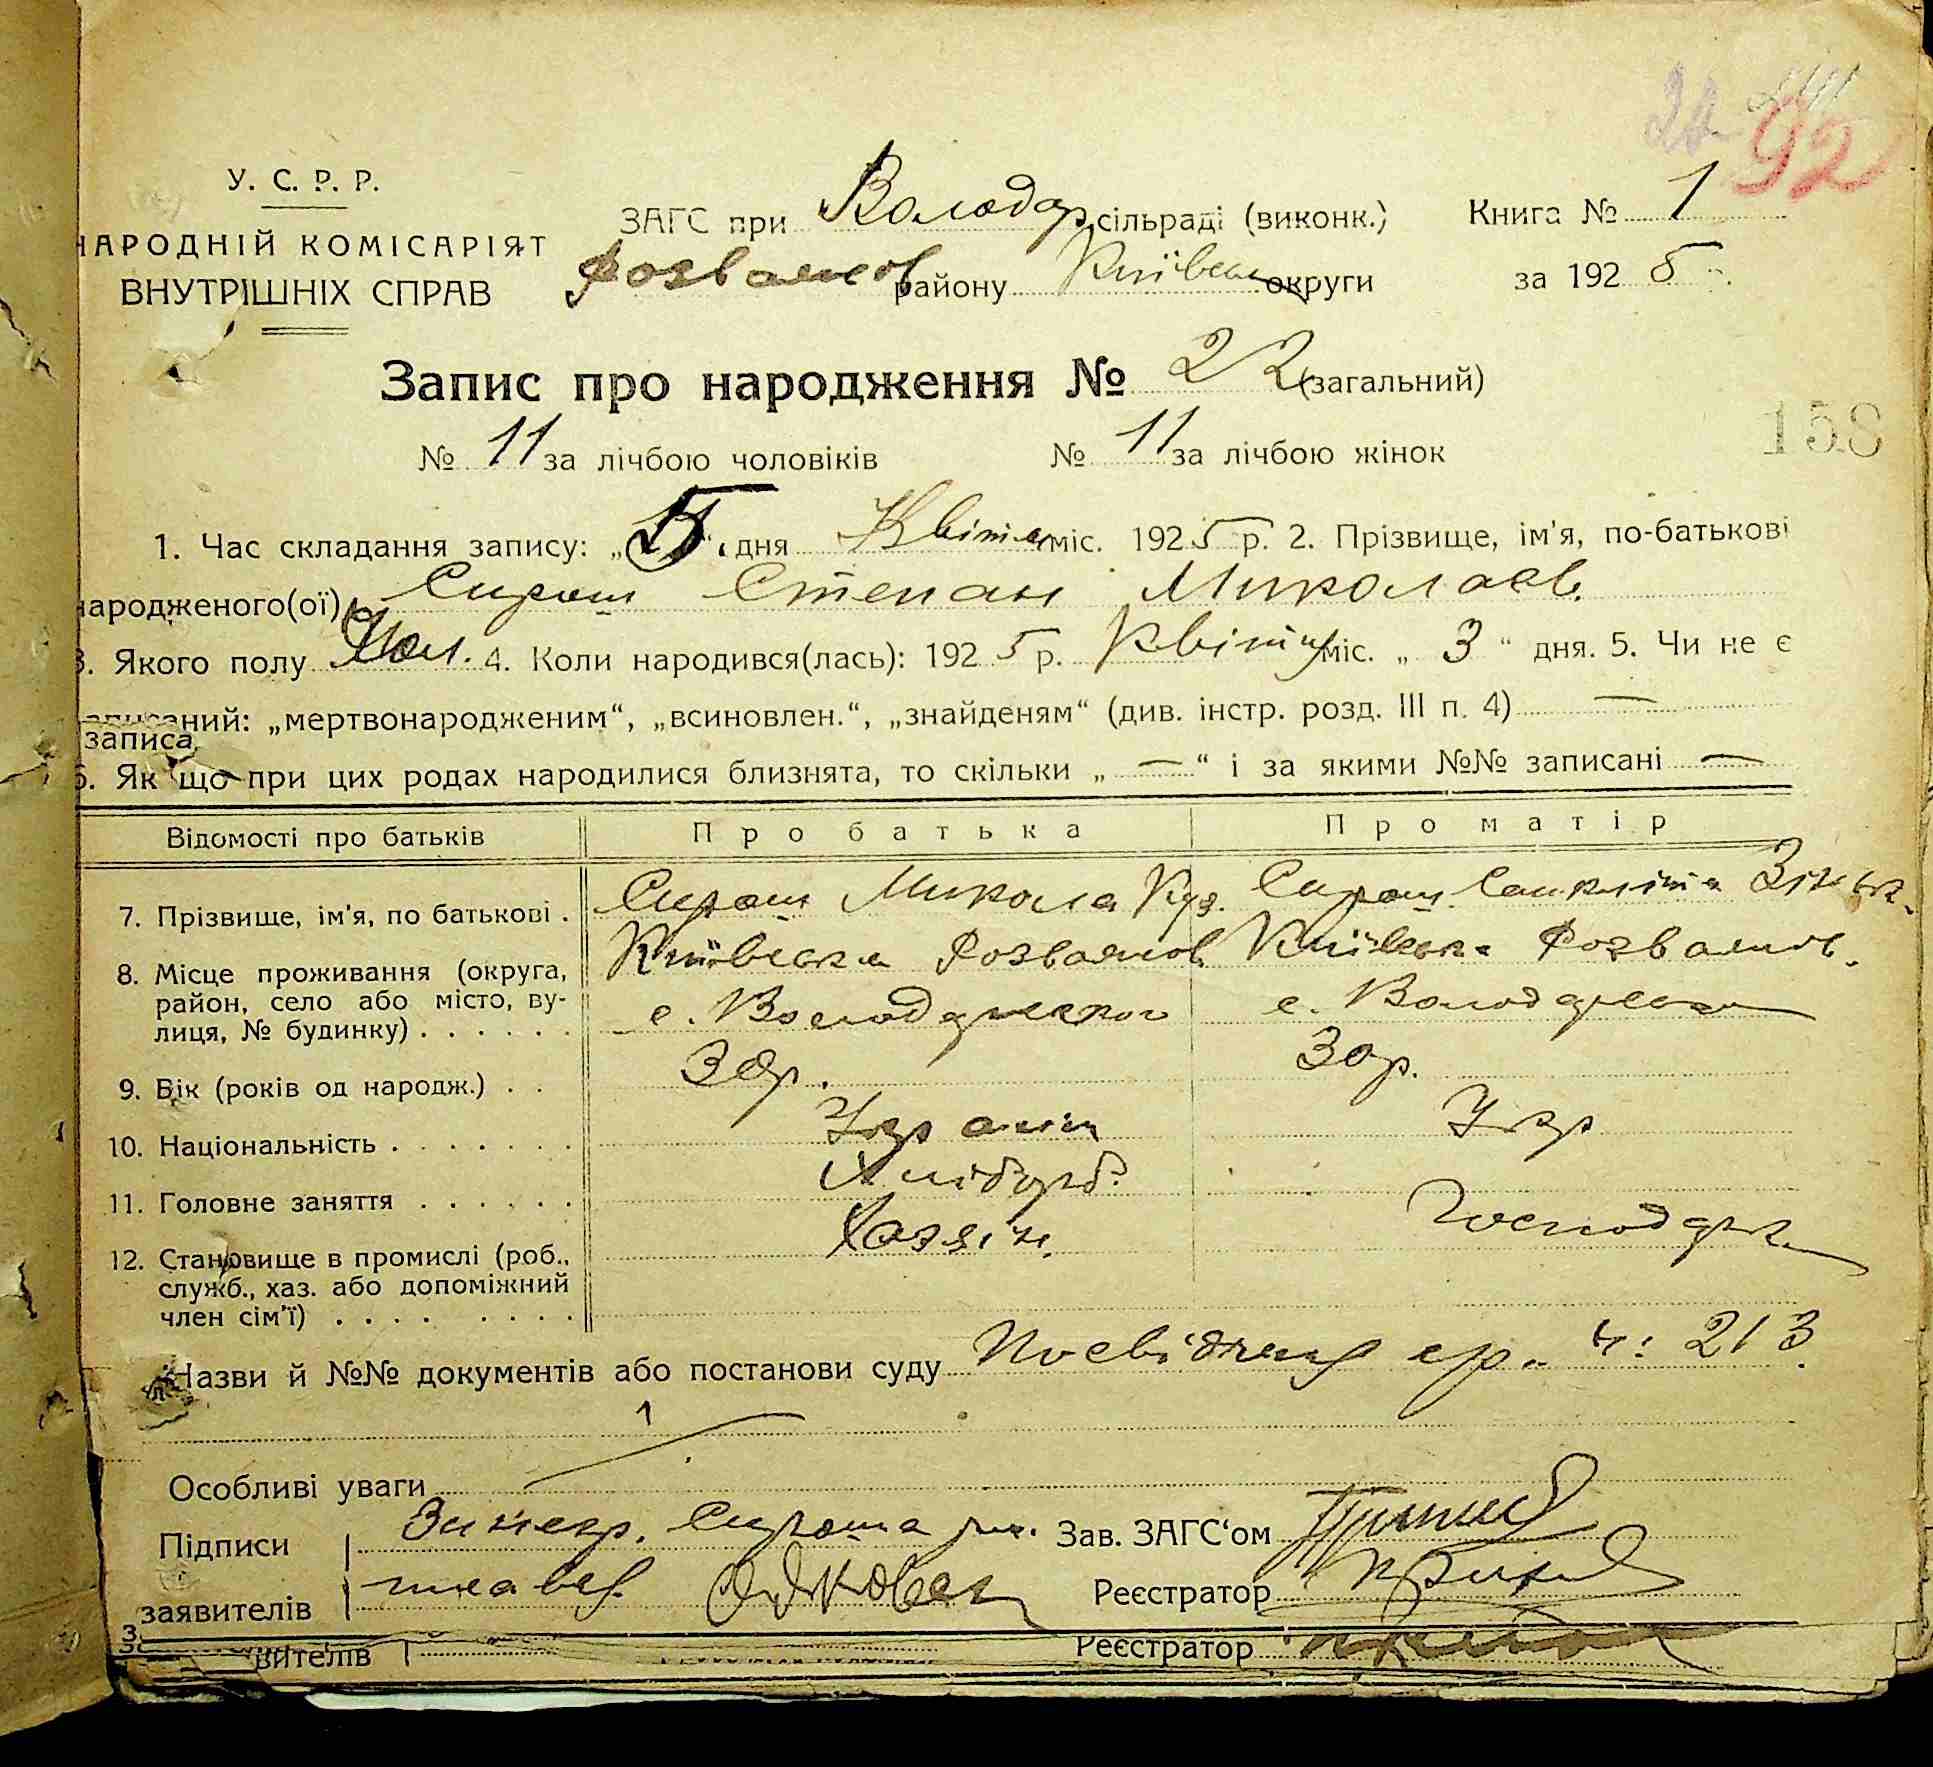 92
У. С. Р. Р.
НАРОДНІЙ КОМІСАРІЯТ
ВНУТРІШНІХ СПРАВ
ЗАГС при Володар. сільраді (виконк.) Книга № 1
Розважов району Київськ округи за 1925
Запис про народження № 22 (загальний)
№ 11 за лічбою чоловіків № 11 за лічбою жінок
158
1. Час складання запису: „5“ дня Квітня міс. 1925 р. 2. Прізвище, ім'я, по-батькові
народженого(ої) Сираш Степан Миколаєв.
3. Якого полу Чол. 4. Коли народився(лась): 1925 р. Квітня міс. „3“ дня. 5. Чи не є
записаний: „мертвонародженим“, „всиновлен.“, „знайденям“ (див. інстр. розд. III п. 4) —
записа
6. Як що при цих родах народилися близнята, то скільки „—“ і за якими №№ записані —
Відомості про батьків Про батька Про матір
7. Прізвище, ім'я, по батькові . Сираш Микола Куз. Сираш Зіньк.
8. Місце проживання (округа, район, село або місто, вулиця, № будинку) . . . . . . Київська Розважов. с. Володарського Київська Розважов. с. Володарськ
9. Вік (років од народж.) . . 30р. 30р.
10. Національність . . . . . . . Україн Укр
11. Головне заняття . . . . . . Хлібороб.
12. Становище в промислі (роб., служб., хаз. або допоміжний член сім'ї) . . . . . . . . Хазяїн. Господарк.
Назви й №№ документів або постанови суду Посвідчення ср. ч: 213.
Особливі уваги
Підписи За негр. Сираша
заявителів
Зав. ЗАГС'ом
Реєстратор
вителів Реєстратор